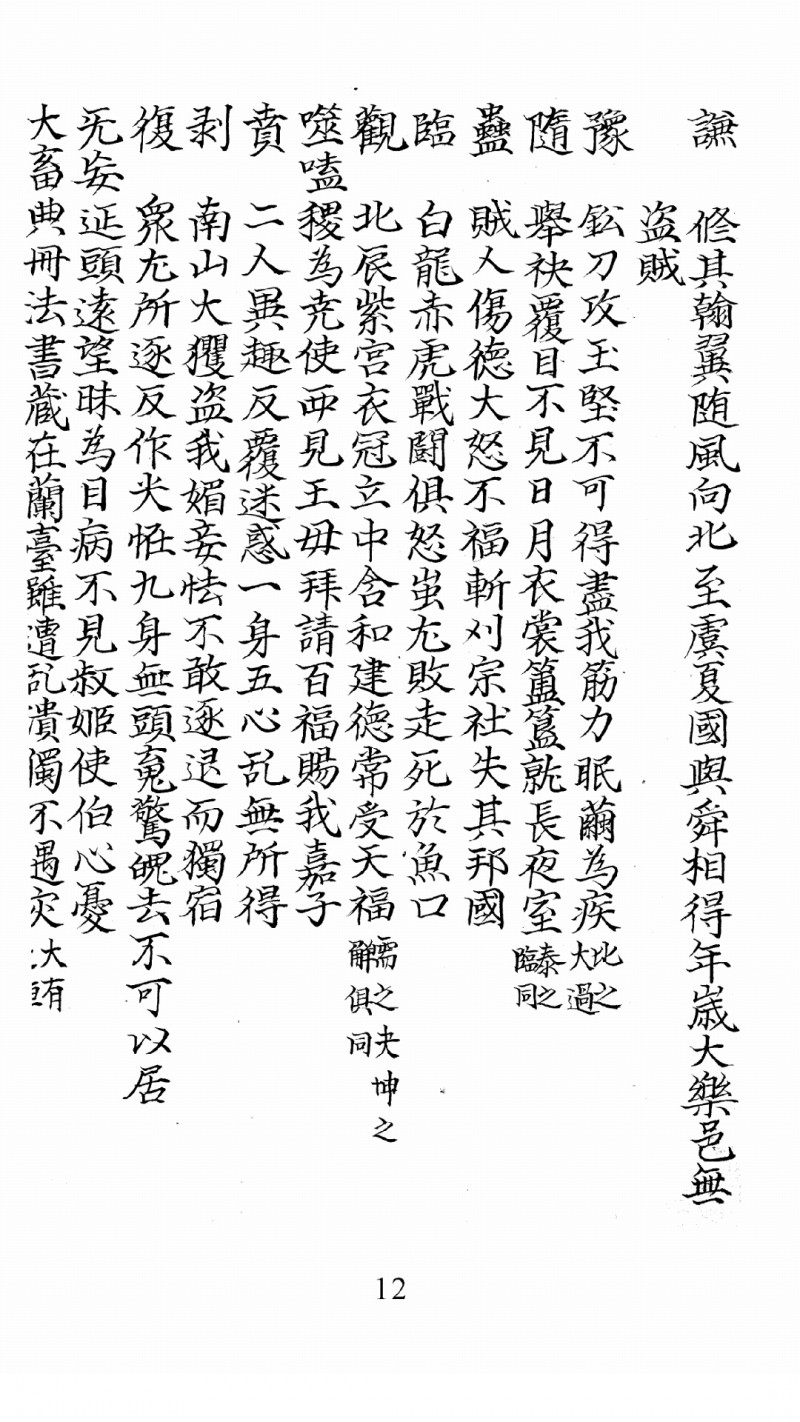 謙 脩其翰翼随風向北至虞夏國與舜相得年嵗大樂邑無
盗賊
豫 鈆刀攻玉堅不可得盡我筋力眠繭為疾 比之大過
隨 舉袂覆目不見日月衣裳簠簋就長夜室 泰之臨同
蠱 賊人傷德大怒不福斬刈宗社失其邦國
臨 白龍赤虎戰鬪俱怒蚩尤敗走死於魚口
觀 北辰紫宮衣冠立中含和建德常受天福 需之夬坤之解俱同
噬嗑 稷為尭使西見王母拜請百福賜我嘉子
賁 二人異趣反覆迷惑一身五心乱無所得
剥 南山大玃盗我媚妾怯不敢逐退而獨宿
復 衆尢所逐反作大恠九身無頭䰟驚魄去不可以居
旡妄 延頭遠望眛為目病不見叔姬使伯心憂
大畜 典冊法書藏在蘭臺雖遭乱潰獨不遇灾 大有
12